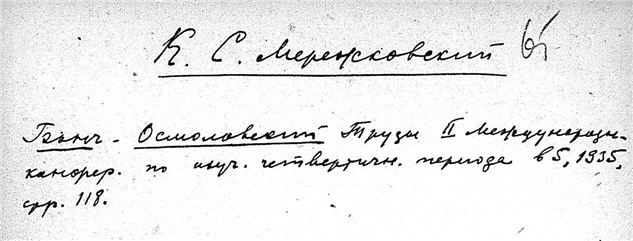 К. С. Мережковский
Бонч-Осмоловский Труды II Международн.
конфер. по изуч. четвертичн. периода в 5, 1935,
стр. 118.